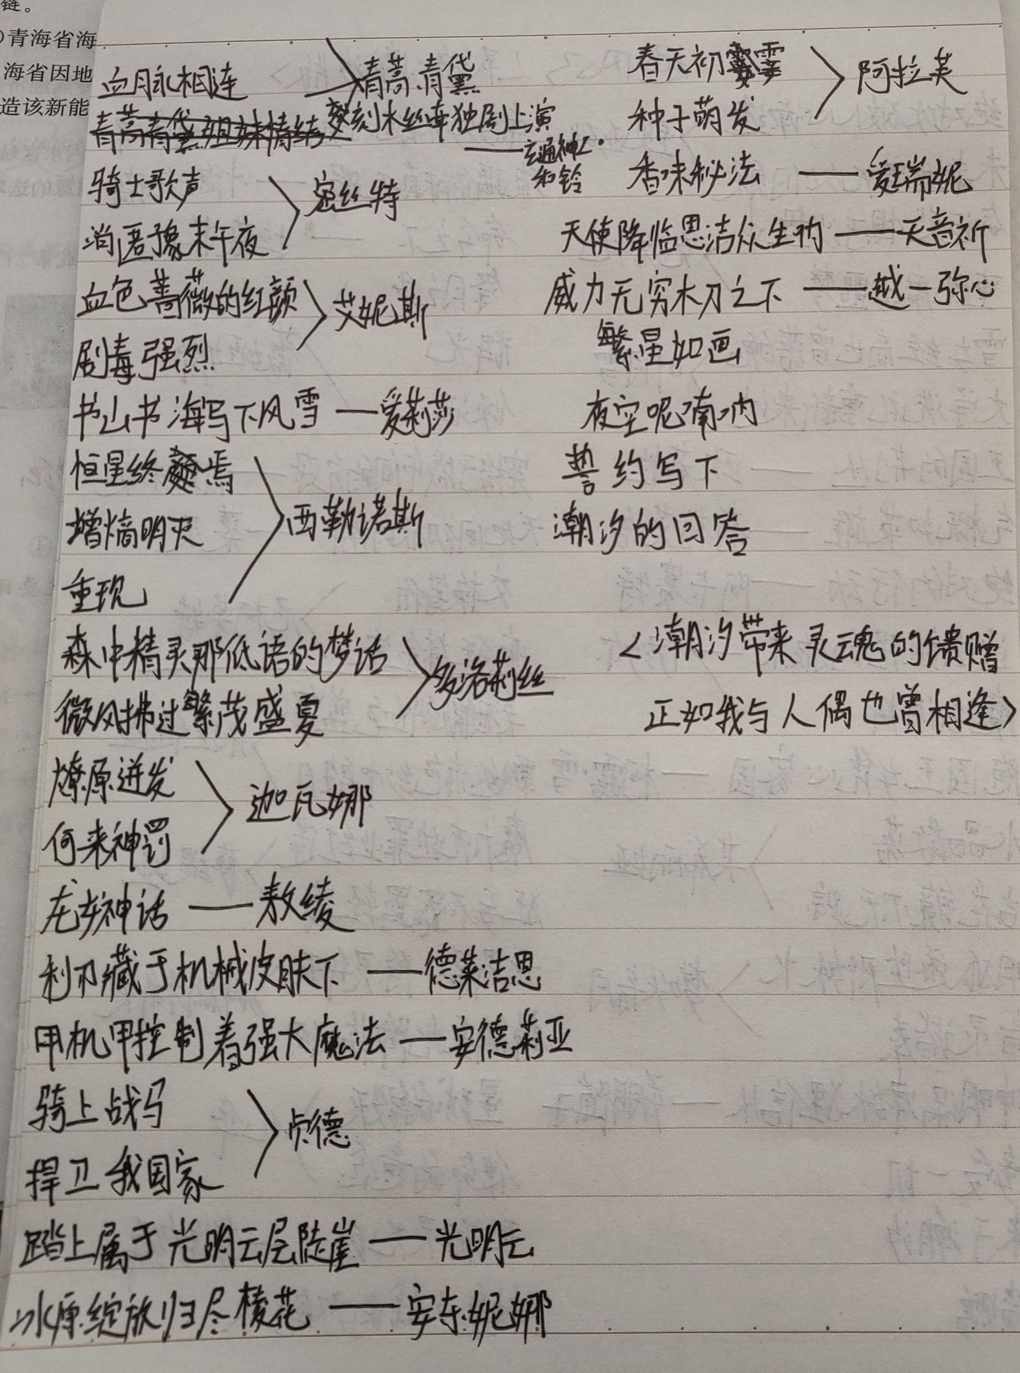 链。
青海省海
海省因地
造该新能
血月永相连
青蒿.青黛
青蒿青黛姐妹情结 篆刻木丝牵独剧上演
——玄通神乙.
和铃
骑士歌声
密丝特
消匿豫末午夜
血色蔷薇的红颜
艾妮斯
剧毒强烈
书山书海写下风雪 —爱莉莎
恒星终焉
增熵明灭
西勒诺斯
重现
森中精灵那低语的梦话
多洛莉丝
微风拂过繁茂盛夏
燎原迸发
迦瓦娜
何来神罚
龙女神话 —— 敖绫
利刃藏于机械皮肤下 ——德莱洁恩
甲机甲控制着强大魔法 —安德莉亚
骑上战马
贞德
捍卫我国家
踏上属于光明云层陡崖 —— 光明云
冰原绽放归尽棱花 —— 安东妮娜
春天初霎
阿拉芙
种子萌发
香味秘法 —— 爱瑞妮
天使降临思洁众生吻 —— 天音祈
威力无穷木刀之下 —— 越一弥心
繁星如画
夜空呢喃呐
誓约写下
潮汐的回答
<潮汐带来灵魂的馈赠
正如我与人偶也曾相逢>